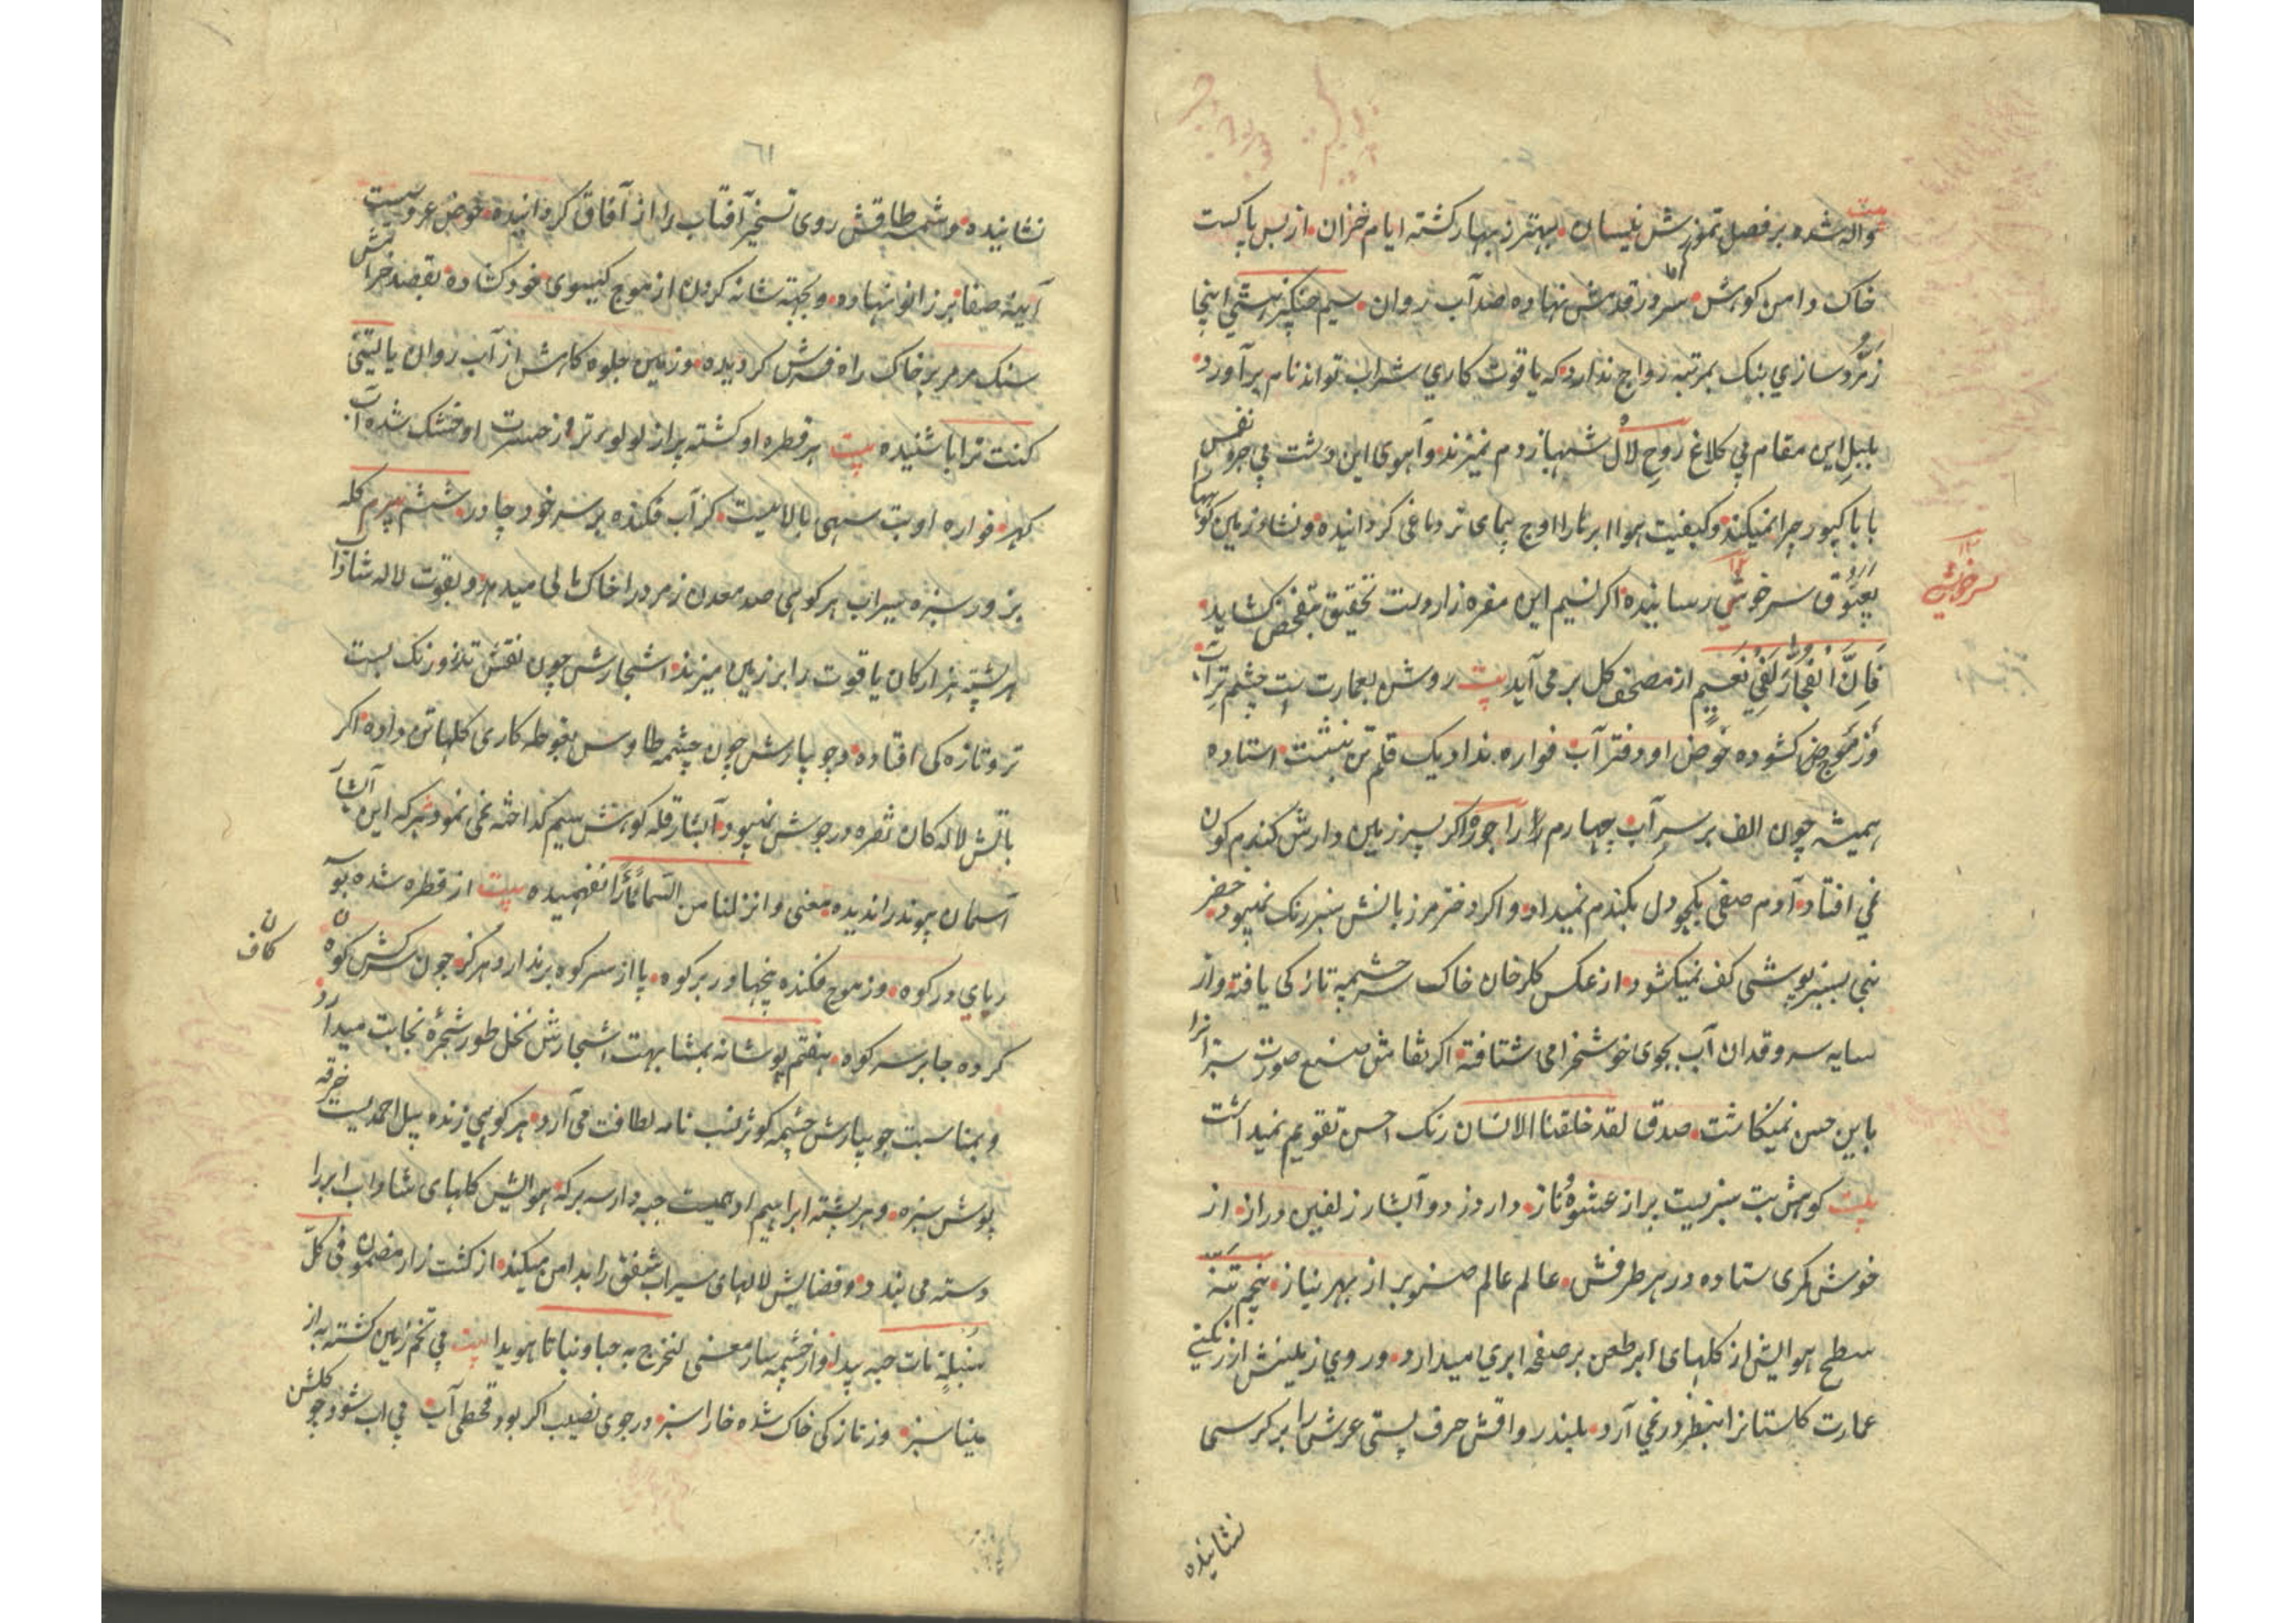 واله شده بر فصل تموزش نیسان بهتر ز بهار کشته ایام خزان از بس پاکست
خاک دامن کوهش سر در قدمش نهاده صد آب روان سیم اینجا
زمرد سازی بنک بمرتبه رواج ندارد که یاقوت کاری شراب تواند نام برآورد
بلبل این مقام بی کلاغ روح لال شهباز دم نمیزند و آهوی این دشت بی جروس نفس
بابا کپور چرا نمیکند و کیفیت هوا ابر را اوج پیمای تر دماغی کردانیده و نشاو زمین کوهها
بعیوق سرخوشی رسانیده اکر نسیم این مفره زار دست تحقیق بتفحص کشاید
فان الفجار لفی نعیم از مصحف کل بر می آید بیت روشن بعمارت بت چشم تر آب
وز موج کشوده حوض او دفتر آب فواره نداد یک قلم تن بنشست استاده
همیشه چون الف بر سر آب چهارم اکر پسر زمین دارش کندم کون
نمی افتاد آدم صفی بکجو دل بکندم نمیداد و اکر دختر مرزبانش سبز رنک نمیبود خضر
نبی بسبز پوشی کف نمیکشود از عکس کلرخان خاک سرچشمه تازکی یافته و از
سایه سرو قدان آب بجوی خوشخرامی شتافته اکر نقاش صنع صورت سبزانرا
باین حسن نمینکاشت صدق لقد خلقنا الانسان رنک احسن تقویم نمیداشت
بیت کوهش بت سبزیست پر از عشوه و ناز دارد ز دو آبشار زلفین دراز از
خوش کمری ستاده در هر طرفش عالم عالم صنوبر از بهر نیاز پنجم تنه
سطح هوایش از کلهای ابر طعن بر صفحه ابری میدارد و روی زمینش از رنکینی
عمارت کلستانرا بنظر در نمی آرد بلند رواقش حرف پستی عرش را بر کرسی
نشانیده
سرخوشی
٦١
نشانیده و شمسه طاقش روی تسخیر آفتاب را از آفاق کردانیده حوض عروسیست
آینه صفا بر زانو نهاده و بجهته شانه کردن از موج کیسوی خود کشاده بقصد خرامش
سنک مرمر بر خاک راه فرش کردیده وز زمین جلوه کاهش از آب روان یا لیتنی
کنت ترابا شنیده بیت هر قطره او کشته پر از لولو تر وز حسرت او خشک شده آب
کهر فواره او بت سهی بالائیست کز آب فکنده بر سر خود چادر ششم پیرم کله
بزور سبزه سیراب هر کوهی صد معدن زمرد را خاک مالی میدهد و بقوت لاله شاداب
هر پشته هزار کان یاقوت را بر زمین میزند اشجارش چون نقش تذرو رنک بست
تر و تازه کی افتاده و جویبارش چون چشمه طاوس بغوطه کاری کلها تن داده اکر
باتش لاله کان نقره در جوش نمیبود آبشار قله کوهش سیم کداخته نمی نمود هر که این آبشار
آسمان پیوند را ندیده معنی و انزلنا من السماء نفهمیده بیت از قطره شده
ربای در کوه وز موج فکنده پنجها در بر کوه پا از سر کوه بر ندارد هرکز چون سرکش کوه
کان
کاف
کرده جا بر سر کوه هفتم پوشانه بمشابهت اشجارش نخل طور شجره نجابت میدارد
و بمناسبت جویبارش چشمه کوثر نسب نامه لطافت می آرد هر کوهی زنده پیل احمدیست خرقه
پوش سبزه و هر پشته ابراهیم ادهمیست جبه دار سه برکه هوایش کلهای شاداب ابر را
دسته می بندد و فضایش لالهای سیراب شفق را بدامن میکند از کشت زار مضمون فی کل
سنبلة مائة حبه پیدا و از چشمه سار معنی لنخرج به حبا و نباتا هویدا بیت بی تخم زمین کشته به از
مینا سبز وز تازکی خاک شده خارا سبز در جوی نصیب اکر بود قحطی آب بی آب شود چو کلشن